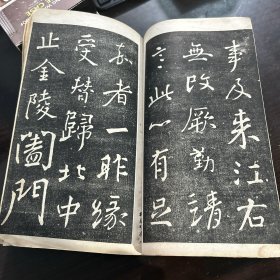 事及来江右
無改厥勤請
言此心有足
哀者一昨緣
受替歸北中
止金陵闔門